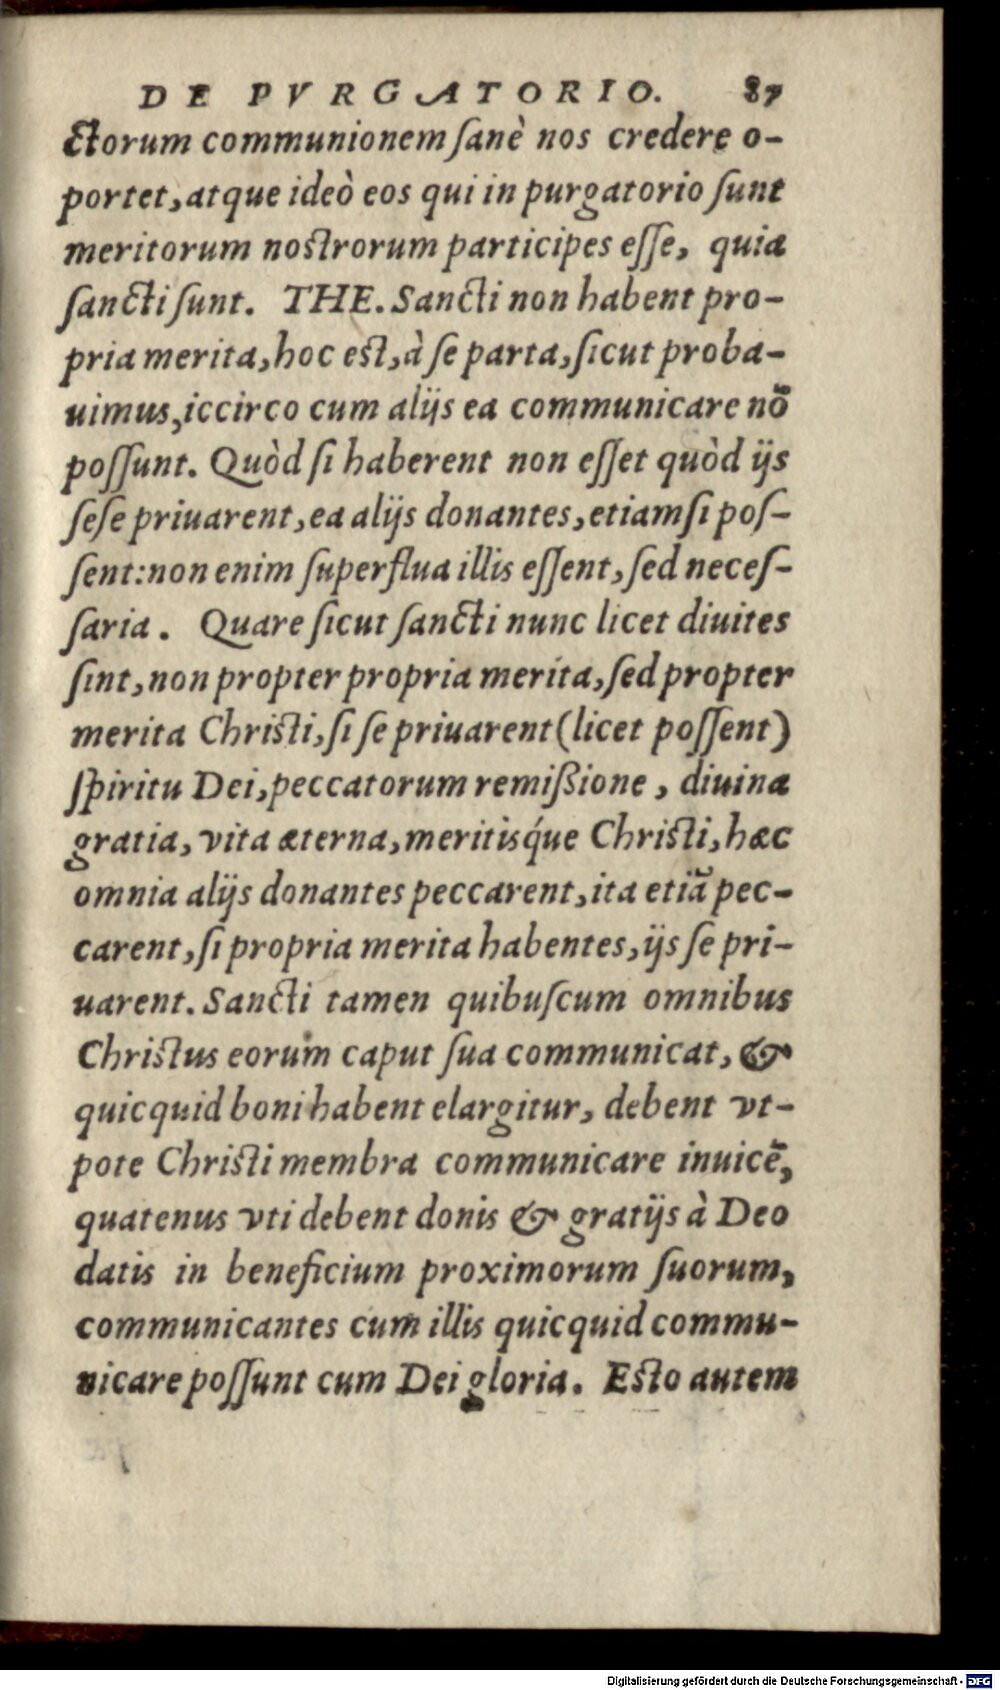 DE PVRGATORIO. 87
ctorum communionem ſanè nos credere o-
portet, atque ideò eos qui in purgatorio ſunt
meritorum noſtrorum participes eſſe, quia
ſancti ſunt. THE. Sancti non habent pro-
pria merita, hoc eſt, à ſe parta, ſicut proba-
uimus, iccirco cum alijs ea communicare nō
poſſunt. Quòd ſi haberent non eſſet quòd ijs
ſeſe priuarent, ea alijs donantes, etiamſi poſ-
ſent: non enim ſuperflua illis eſſent, ſed neceſ-
ſaria. Quare ſicut ſancti nunc licet diuites
ſint, non propter propria merita, ſed propter
merita Chriſti, ſi ſe priuarent (licet poſſent)
ſpiritu Dei, peccatorum remißione, diuina
gratia, vita æterna, meritisq́ue Chriſti, hæc
omnia alijs donantes peccarent, ita etiā pec-
carent, ſi propria merita habentes, ijs ſe pri-
uarent. Sancti tamen quibuſcum omnibus
Chriſtus eorum caput ſua communicat, &
quicquid boni habent elargitur, debent vt-
pote Chriſti membra communicare inuicē,
quatenus vti debent donis & gratijs à Deo
datis in beneficium proximorum ſuorum,
communicantes cum illis quicquid commu-
nicare poſſunt cum Dei gloria. Eſto autem
Digitalisierung gefördert durch die Deutsche Forschungsgemeinschaft - DFG